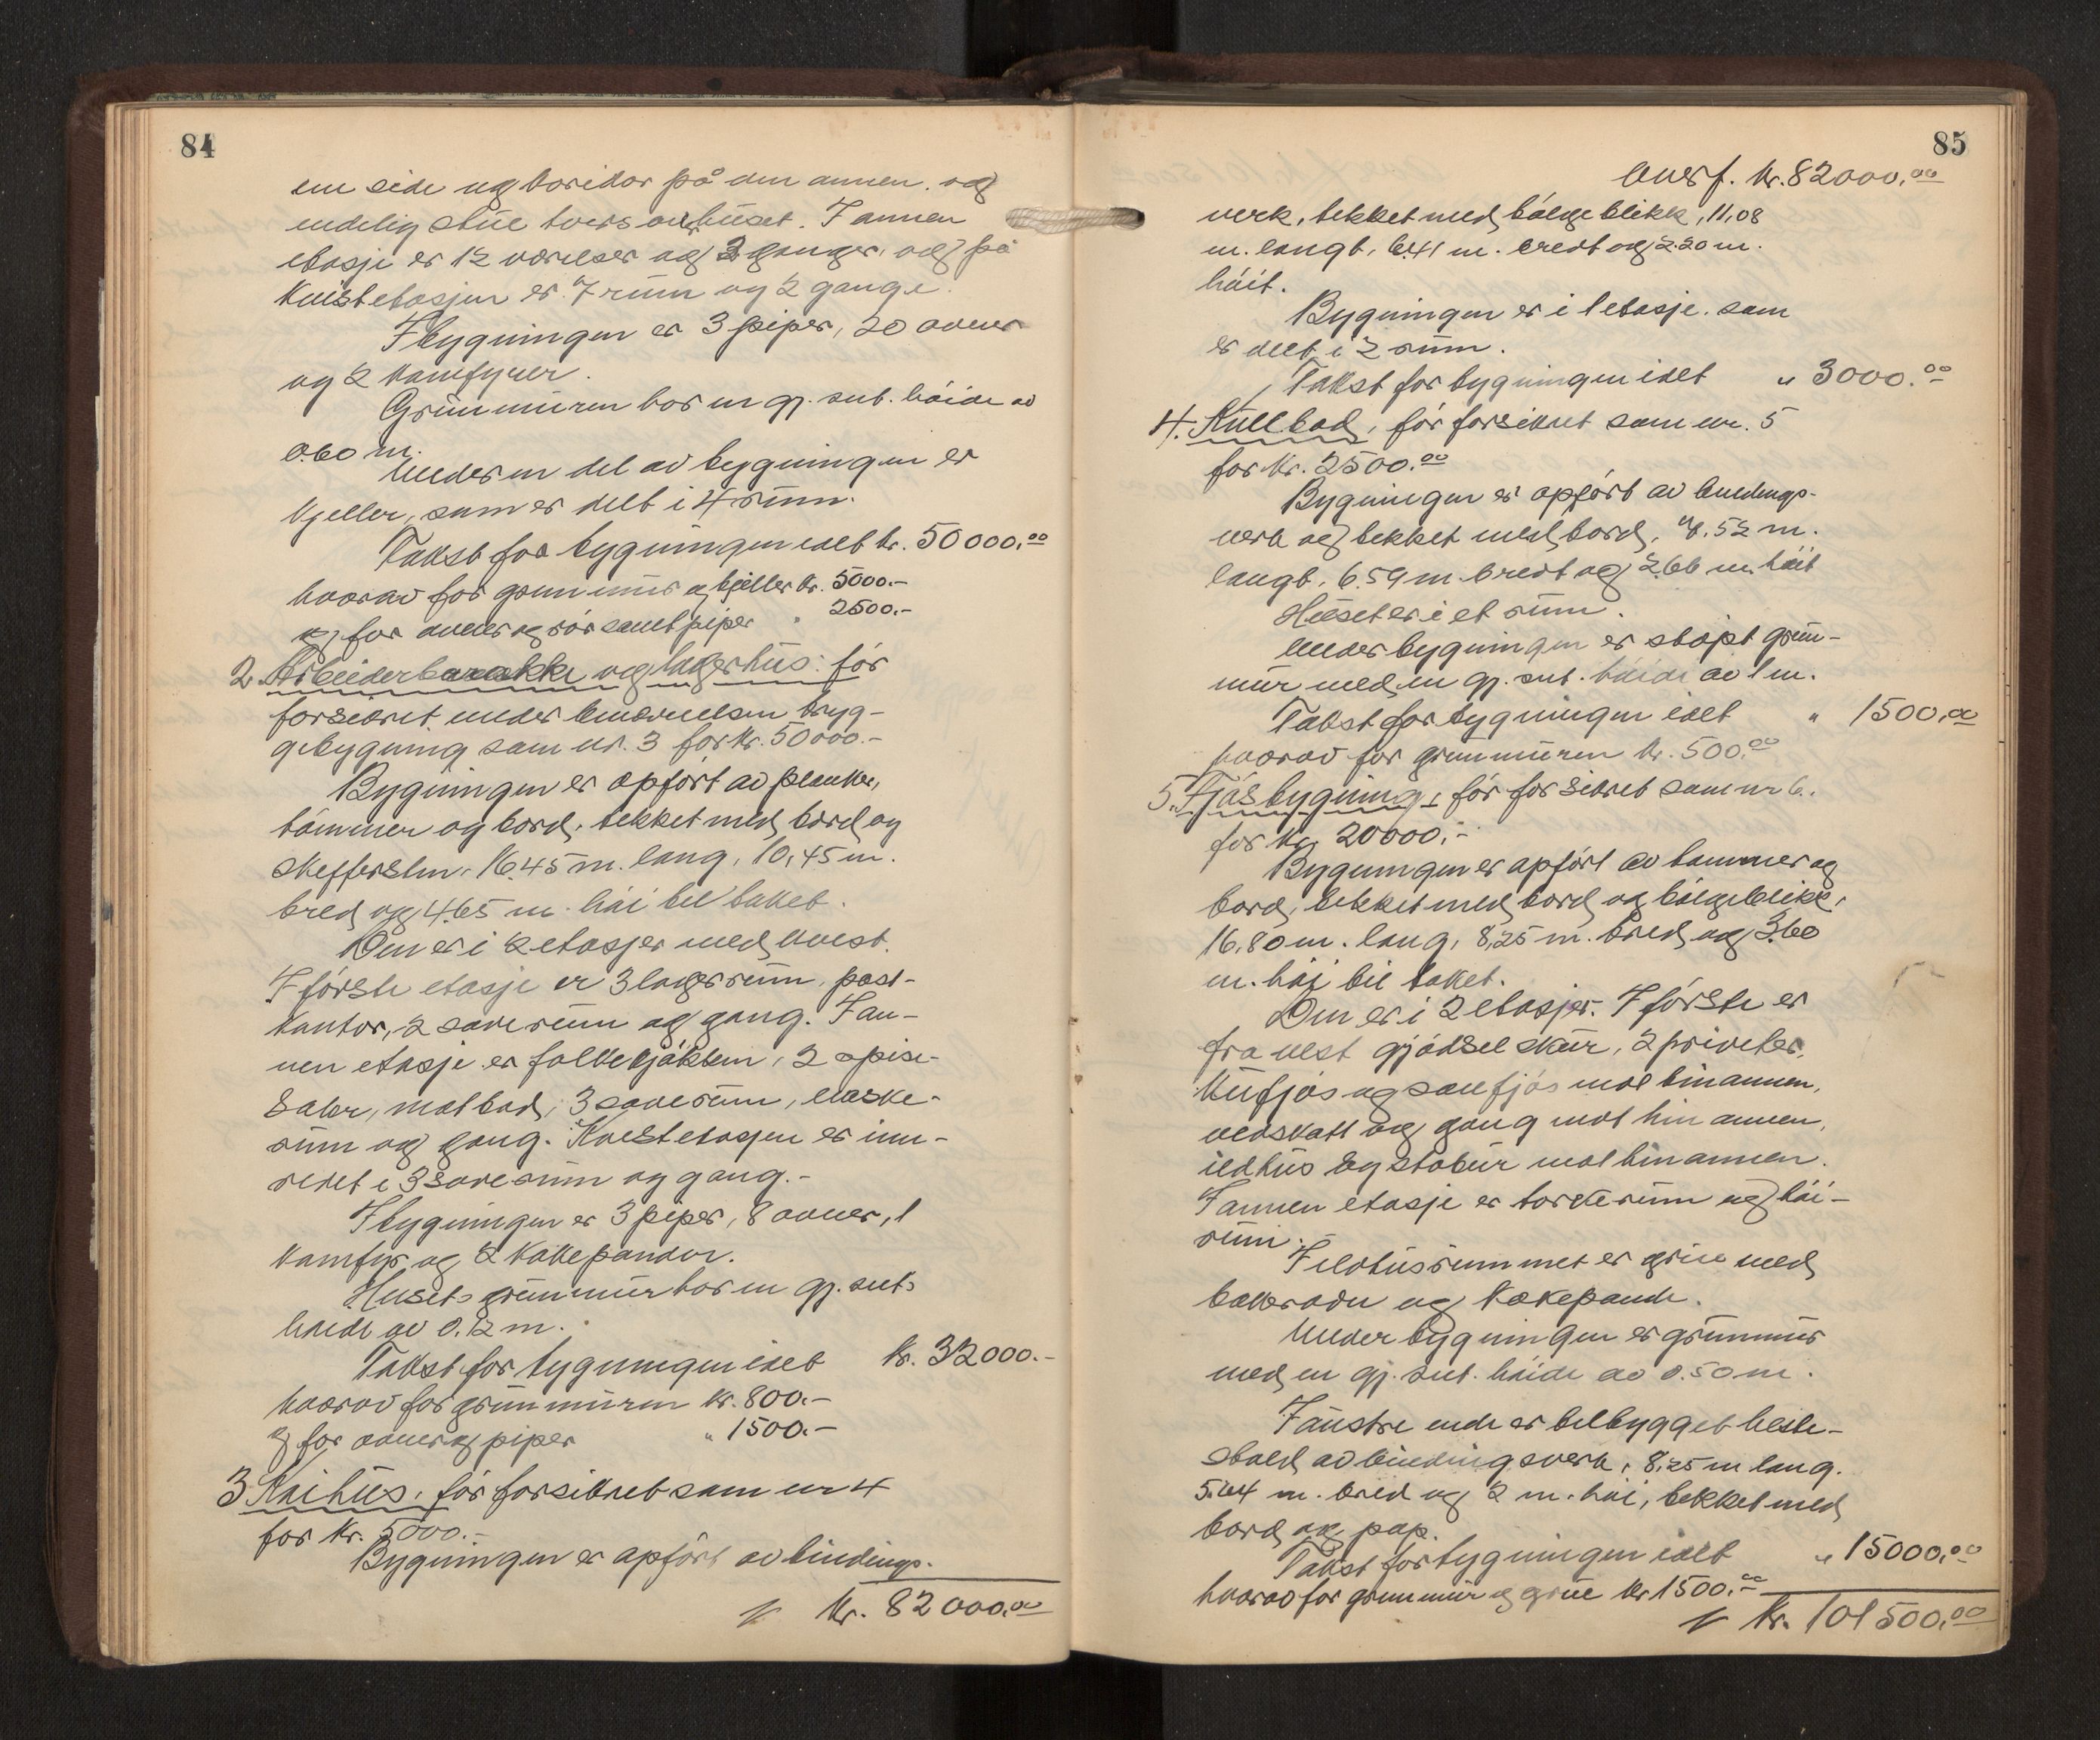 84
em side og koridor på den annen. og
endelig stue tvers over huset. I annen
etasje er 12 værelser og 3 ganger, og på
kvistetasjen er 7 rum og 2 gange.
I bygningen er 3 piper, 20 ovner
og 2 komfyrer.
Grunmuren har en gj. snt. höide av
0.60 m.
Under en del av bygningen er
kjeller, som er delt i 4 rum.
Takst for bygningen ialt kr. 50000.00
hvorav for grunmur og kjeller kr. 5000.-
og for ovner og rör samt piper " 2500.-
2. Arbeiderbarakke og lagerhus: för
forsikret under benevnelsen bryg-
gebygning som nr. 3 for kr. 50000.-
Bygningen er opfört av planker,
tömmer og bord, tekket med bord og
skeffersten, 16.45 m. lang, 10,45 m.
bred og 4.65 m. höi til taket.
Den er i 2 etasjer med kvist.
I förste etasje er 3 lagerrum, post-
kontor, 2 soverum og gang. I an-
nen etasje er folkekjökken, 2 spise-
saler, matbod, 3 soverum, vaske-
rum og gang. Kvistetasjen er inn-
redet i 3 soverum og gang.-
I bygningen er 3 piper, 8 ovner, 1
komfyr og 2 kokepander.
Husets grunmur har en gj. snt.
höide av 0.12 m.
Takst for bygningen ialt kr. 32000.-
hvorav for grunmuren kr. 800.-
og for ovner og piper " 1500.-
3 Kaihus, för forsikret som nr 4
for kr. 5000.-
Bygningen er opfört av bindings-
kr. 82000.00
85
Overf. kr. 82000.00
verk, tekket med bölgeblikk, 11,08
m. langt, 6.41 m. bredt og 2.20 m.
höit.
Bygningen er i 1 etasje. som
er delt i 2 rum.
Takst for bygningen ialt " 3000.00
4. Kullbod, för forsikret som nr. 5
for kr. 2500.00
Bygningen er opfört av bindings-
verk og tekket med bord, 52 m.
langt, 6.59 m. bredt og 2.66 m. höit
Huset er i et rum.
Under bygningen er stöpt grun-
mur med en gj. snt. höide av 1 m.
Takst for bygningen ialt " 1500.00
hvorav for grunmuren kr. 500.00
5. Fjösbygning, för forsikret som nr 6.
for kr. 20000.-
Bygningen er opfört av tömmer og
bord, tekket med bord og bölgeblikk,
16,80 m. lang, 8,25 m. bred og 3.60
m. höi til taket.
Den er i 2 etasjer. I förste er
fra vest gjödselskur, 2 priveter,
kufjös og sauefjös mot hinannen,
vedskott og gang mot hinannen,
ildhus og stabur mot hinannen.
I annen etasje er törkerum og höi-
rum.
I ildhusrummet er grue med
bakerovn og kokepande.
Under bygningen er grunmur
med en gj. snt. höide av 0.50 m.
I östre ende er tilbygget heste-
stald av bindingsverk, 8,25 m lang.
5.64 m. bred og 2 m. höi, tekket med
bord og pap.
Takst for bygningen ialt " 15000.00
hvorav for grunmur og grue kr 1500.00
kr. 101500.00